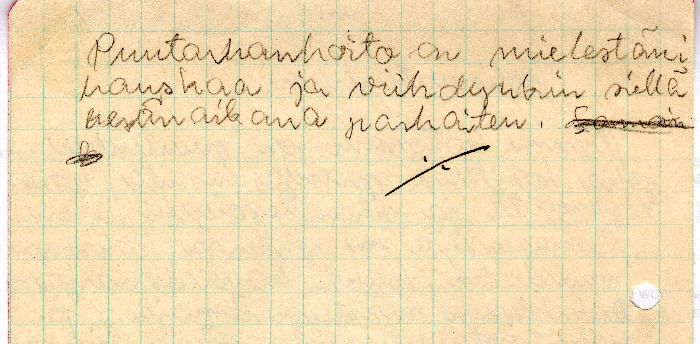 Puutarhanhoito on mielestäni
hauskaa ja viihdynkin siellä
kesänaikana parhaiten.